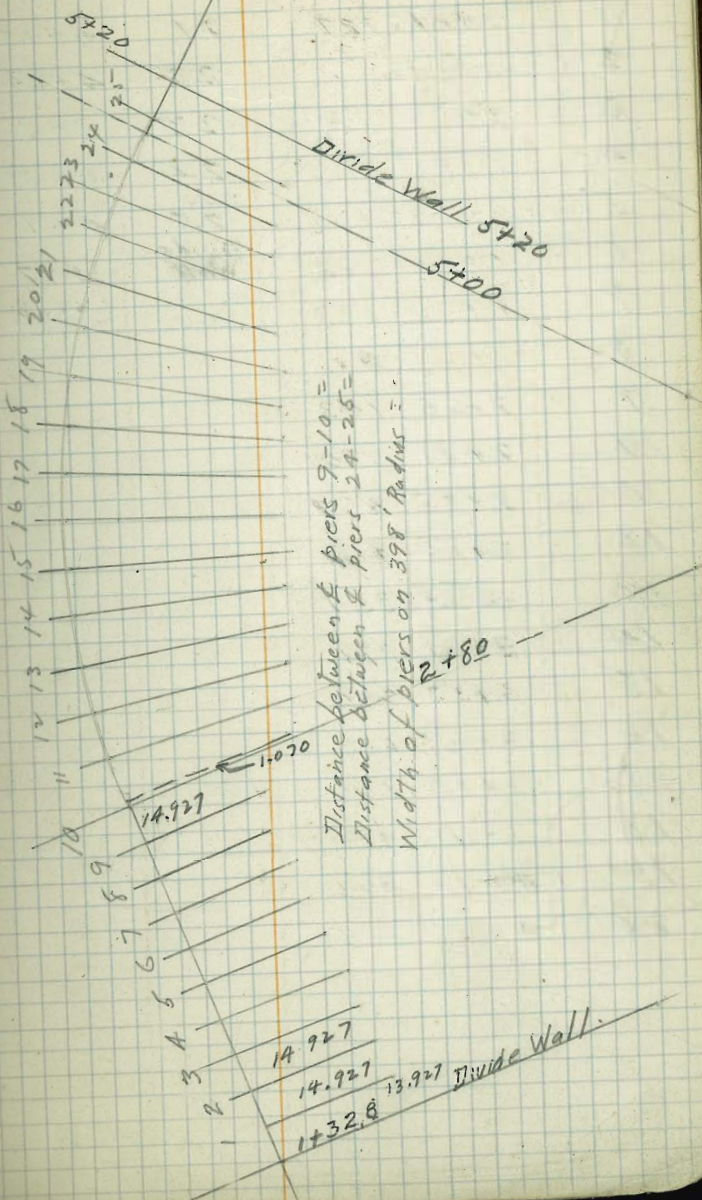 5+20
1
25
24
23
22
21
20
19
18
17
16
15
14
13
12
11
10
9
8
7
6
5
4
3
2
1
Divide Wall 5+20
5+00
Distance between ℄ piers 9-10 =
Distance between ℄ piers 24-25=
Width of piers on 398' Radius =
2+80
1.070
14.927
14.927
14.927
13.927
1+32.8
Divide Wall.